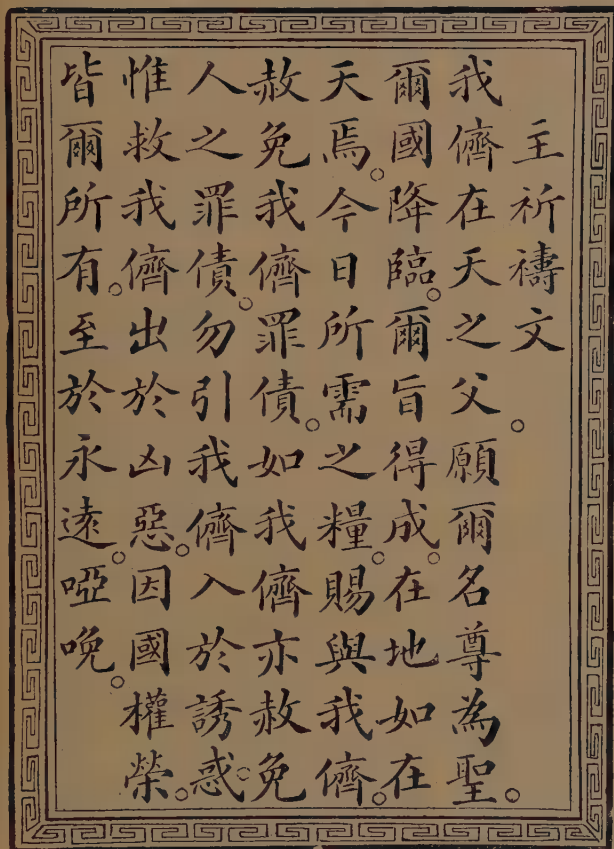 主祈禱文
我儕在天之父。願爾名尊為聖。
爾國降臨。爾旨得成。在地如在
天焉。今日所需之糧。賜與我儕。
赦免我儕罪債。如我儕亦赦免
人之罪債。勿引我儕入於誘惑。
惟救我儕出於凶惡。因國權榮。
皆爾所有。至於永遠。啞唲。